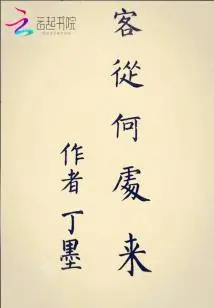 云起书院
客從何處来
作者 丁墨